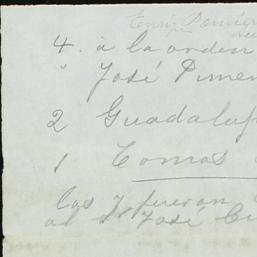 4. á la orden
" José Pimen
2 Guadalup
1 Tomas
los 7 fueron
al Sr José